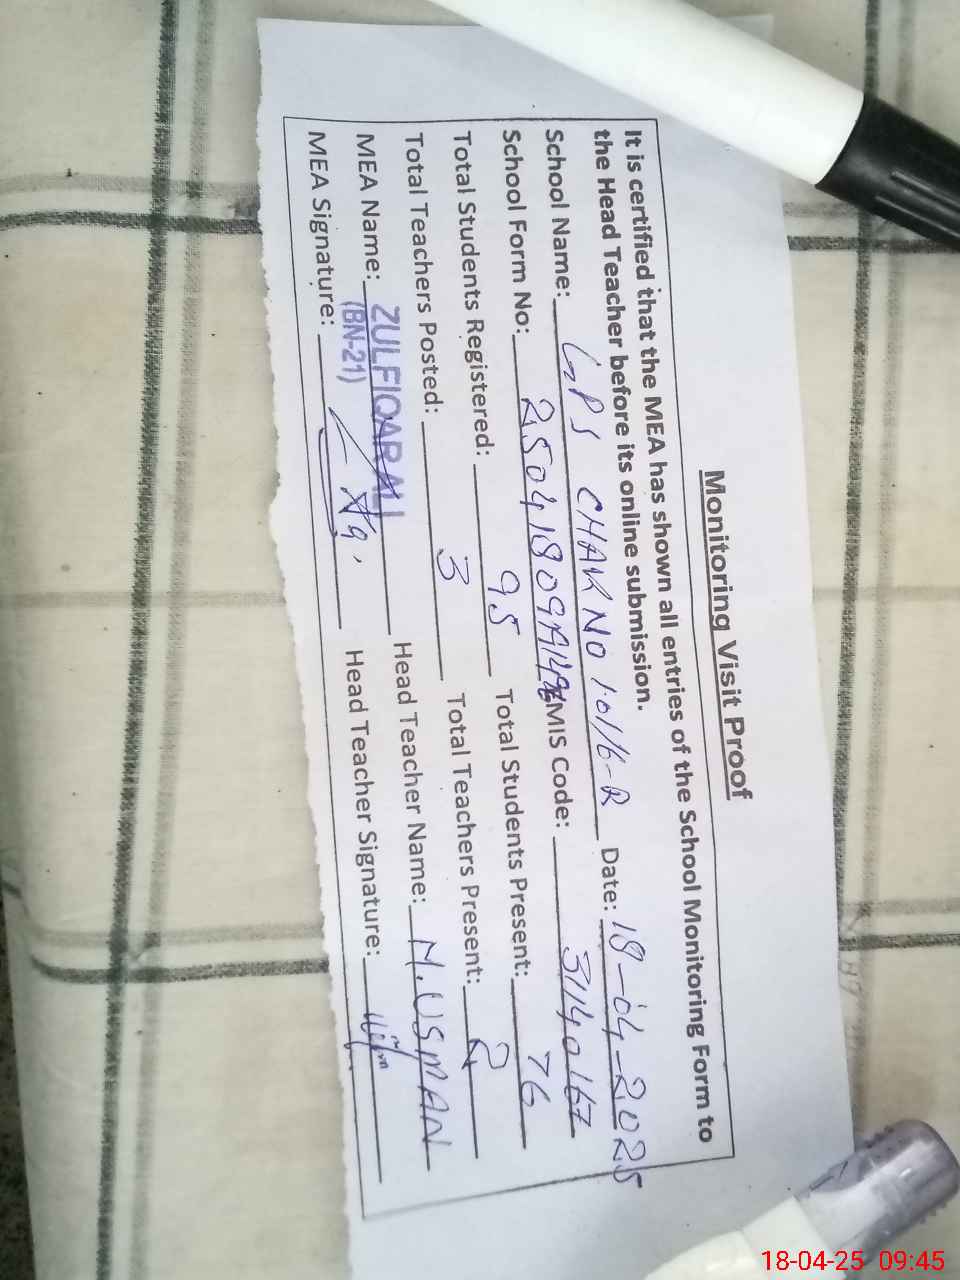 Monitoring Visit Proof
It is certified that the MEA has shown all entries of the School Monitoring Form to
the Head Teacher before its online submission.
School Name: GPS CHAK NO 101/6-R Date: 18-04-2025
School Form No: 25041809A149 EMIS Code: 31140167
Total Students Registered: 95 Total Students Present: 76
Total Teachers Posted: 3 Total Teachers Present: 2
MEA Name: ZULFIQAR ALI Head Teacher Name: M.USMAN
(BN-21)
MEA Signature: Head Teacher Signature:
18-04-25 09:45